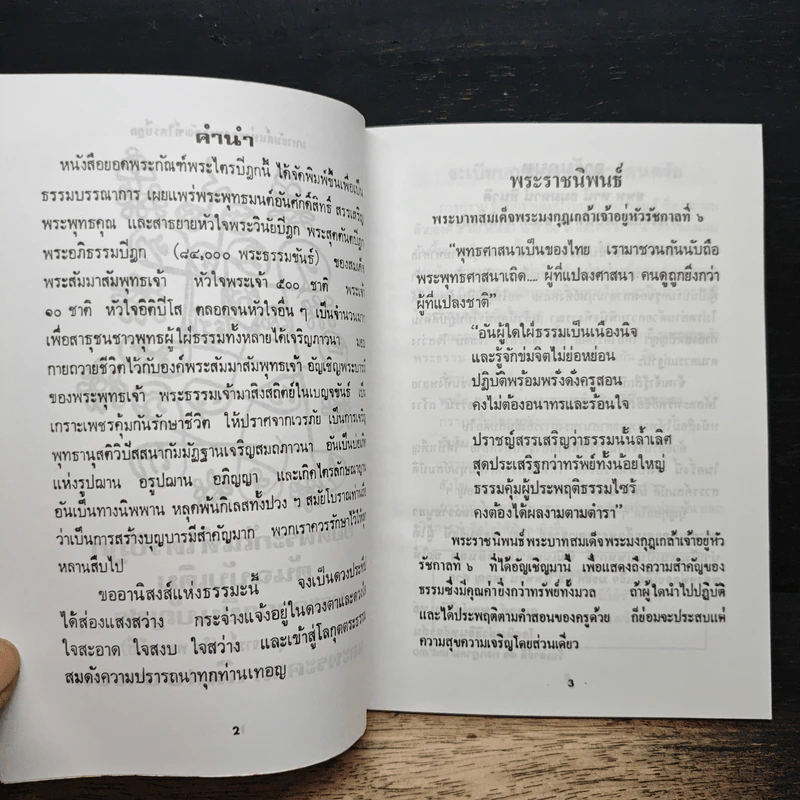 คำนำ
หนังสือยอดพระกัณฑ์พระไตรปิฎกนี้ ได้จัดพิมพ์ขึ้นเพื่อเป็น
ธรรมบรรณาการ เผยแพร่พระพุทธมนต์อันศักดิ์สิทธิ์ สรรเสริญ
พระพุทธคุณ และสาธยายหัวใจพระวินัยปิฎก พระสุตตันตปิฎก
พระอภิธรรมปิฎก (๘๔,๐๐๐ พระธรรมขันธ์) ของสมเด็จ
พระสัมมาสัมพุทธเจ้า หัวใจพระเจ้า ๕๐๐ ชาติ พระเจ้า
๑๐ ชาติ หัวใจอิติปิโส ตลอดจนหัวใจอื่น ๆ เป็นจำนวนมาก
เพื่อสาธุชนชาวพุทธผู้ใฝ่ธรรมทั้งหลายได้เจริญภาวนา มอบ
กายถวายชีวิตไว้กับองค์พระสัมมาสัมพุทธเจ้า อัญเชิญพระบารมี
ของพระพุทธเจ้า พระธรรมเจ้ามาสิงสถิตย์ในเบญจขันธ์ เป็น
เกราะเพชรคุ้มกันรักษาชีวิต ให้ปราศจากเวรภัย เป็นการเจริญ
พุทธานุสติวิปัสสนากัมมัฏฐานเจริญสมถภาวนา อันเป็นบ่อเกิด
แห่งรูปฌาน อรูปฌาน อภิญญา และเกิดไตรลักษณาญาณ
อันเป็นทางนิพพาน หลุดพ้นกิเลสทั้งปวง ๆ สมัยโบราณท่านถือ
ว่าเป็นการสร้างบุญบารมีสำคัญมาก พวกเราควรรักษาไว้ให้ลูก
หลานสืบไป
ขออานิสงส์แห่งธรรมะนี้ จงเป็นดวงประทีป
ได้ส่องแสงสว่าง กระจ่างแจ้งอยู่ในดวงตาและดวงใจ
ใจสะอาด ใจสงบ ใจสว่าง และเข้าสู่โลกุตตระธรรม
สมดังความปรารถนาทุกท่านเทอญ
2
พระราชนิพนธ์
พระบาทสมเด็จพระมงกุฎเกล้าเจ้าอยู่หัวรัชกาลที่ ๖
"พุทธศาสนาเป็นของไทย เรามาชวนกันนับถือ
พระพุทธศาสนาเถิด.... ผู้ที่แปลงศาสนา คนดูถูกยิ่งกว่า
ผู้ที่แปลงชาติ"
"อันผู้ใดใฝ่ธรรมเป็นเนืองนิจ
และรู้จักข่มจิตไม่ย่อหย่อน
ปฏิบัติพร้อมพรั่งดั่งครูสอน
คงไม่ต้องอนาทรและร้อนใจ
ปราชญ์สรรเสริญว่าธรรมนั้นล้ำเลิศ
สุดประเสริฐกว่าทรัพย์ทั้งน้อยใหญ่
ธรรมคุ้มผู้ประพฤติธรรมไซร้
คงต้องได้ผลงามตามตำรา"
พระราชนิพนธ์ พระบาทสมเด็จพระมงกุฎเกล้าเจ้าอยู่หัว
รัชกาลที่ ๖ ที่ได้อัญเชิญมานี้ เพื่อแสดงถึงความสำคัญของ
ธรรมซึ่งมีคุณค่ายิ่งกว่าทรัพย์ทั้งมวล ถ้าผู้ใดนำไปปฏิบัติ
และได้ประพฤติตามคำสอนของครูด้วย ก็ย่อมจะประสบแต่
ความสุขความเจริญโดยส่วนเดียว
3